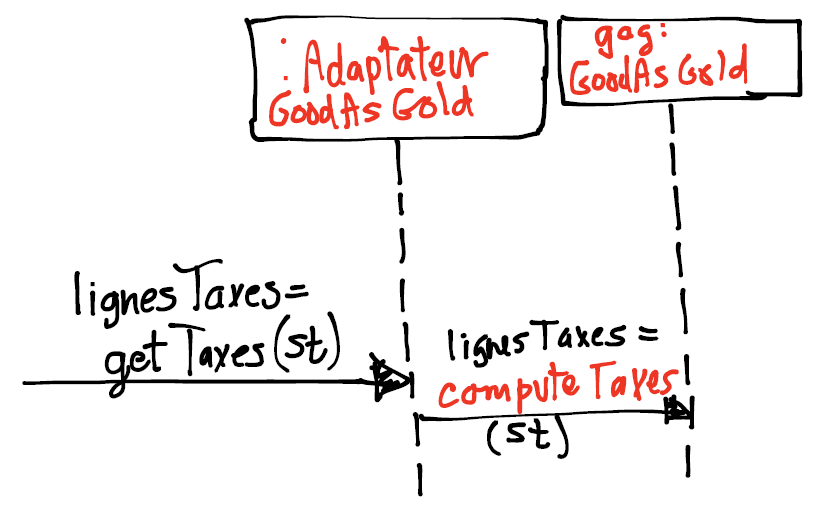 : Adaptateur
GoodAs Gold
gag:
GoodAs Gold
lignesTaxes=
getTaxes(st)
lignesTaxes =
computeTaxes
(st)